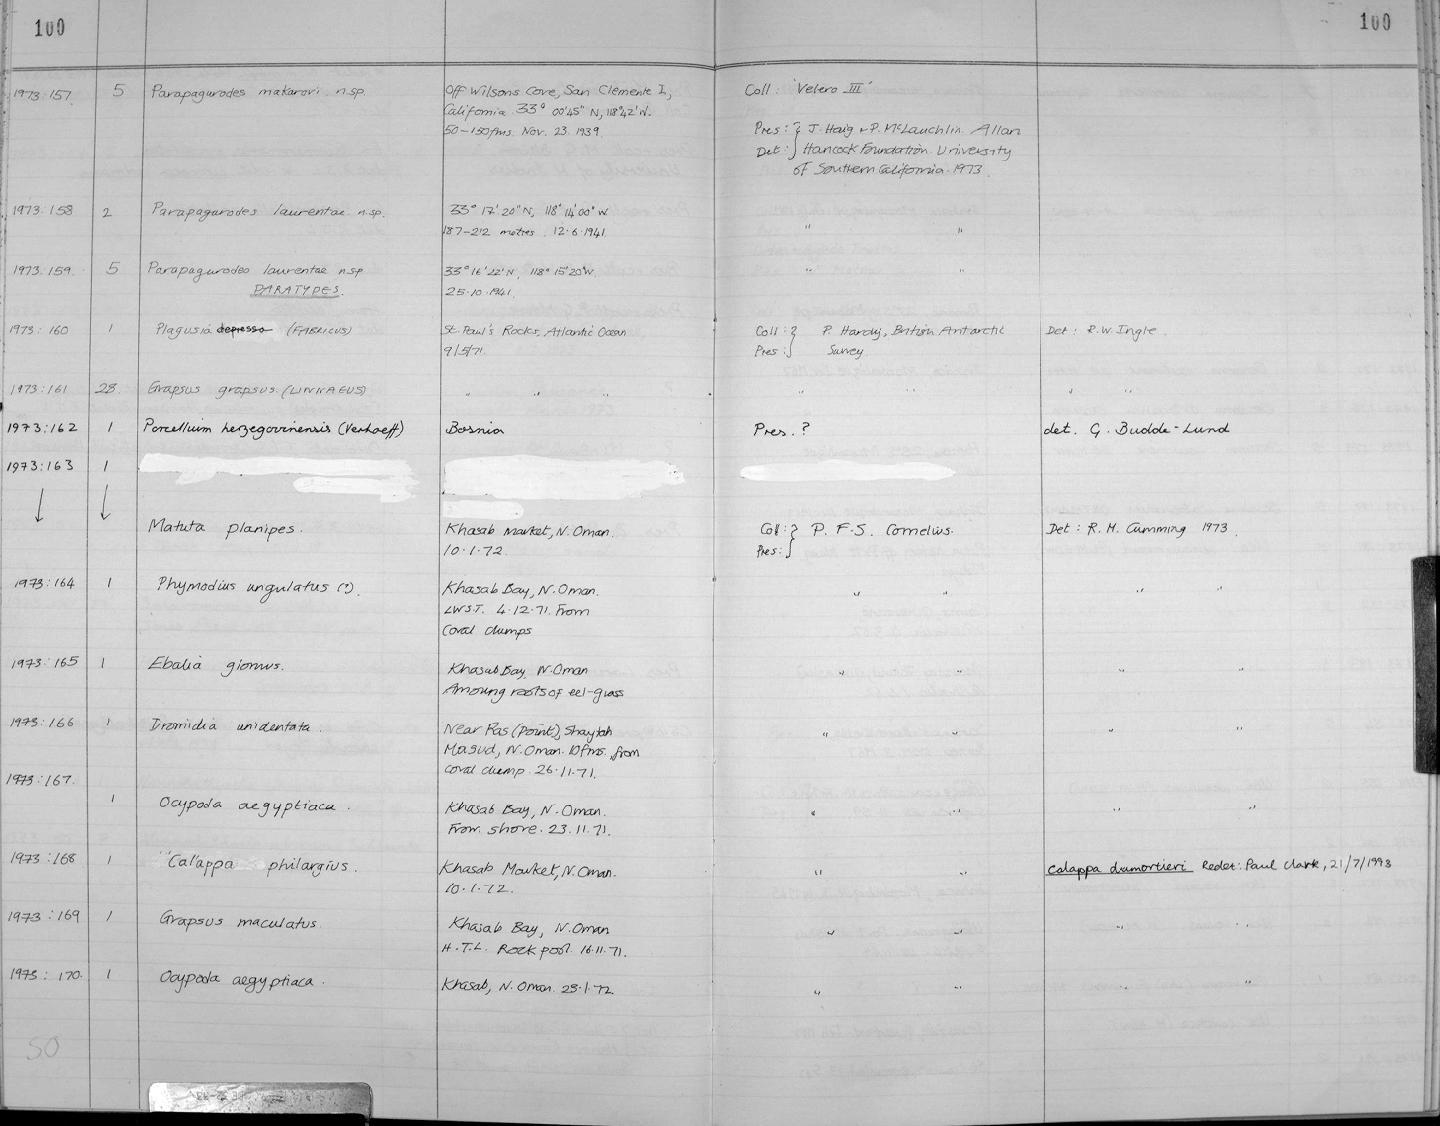 100
100
1973:157. 5 Parapagurodes makarovi n.sp. Off Wilsons Cove, San Clemente I, Coll: 'Velero III'
California 33° 00'45" N, 118°42'W.
50-150fms. Nov. 23. 1939. Pres: } J. Haig & P. McLaughlin. Allan
Det: } Hancock Foundation. University
of Southern California. 1973.
1973:158 2 Parapagurodes laurentae n.sp. 33° 17' 20" N, 118° 14' 00" W
187-212 metres. 12.6.1941. " "
1973:159. 5 Parapagurodes laurentae n.sp 33° 16' 22" N, 118° 15' 20" W. " "
PARATYPES. 25.10.1941.
1973:160 1 Plagusia depressa (FABRICUS) St. Paul's Rocks, Atlantic Ocean Coll: } P. Hardy, British Antarctic Det: R.W. Ingle.
9/5/71. Pres: } Survey.
1973:161 28. Grapsus grapsus. (LINNAEUS) " " " " " " "
1973:162 1 Porcellium herzegovinensis (Verhoeff) Bosnia Pres. ? det. G. Budde-Lund
1973:163 1
Matuta planipes. Khasab Market, N. Oman. Coll: } P. F.S. Cornelius. Det: R.M. Cumming 1973.
10.1.72. Pres: }
1973:164 1 Phymodius ungulatus (?). Khasab Bay, N. Oman. " " " "
LWST. 4.12.71. From
Coral clumps
1973:165 1 Ebalia gionius. Khasab Bay, N. Oman " " " "
Amoung roots of eel-grass
1973:166 1 Dromidia unidentata. Near Ras (Point) Shaytah " " " "
Masud, N. Oman. 10fms. from
Coral clump. 26.11.71.
1973:167.
1 Ocypoda aegyptiaca. Khasab Bay, N. Oman. " " " "
From shore. 23.11.71.
1973:168 1 "Calappa philargius. Khasab Market, N. Oman. " " Calappa dumortieri Redet: Paul Clark, 21/7/1993
10.1.72.
1973:169 1 Grapsus maculatus. Khasab Bay, N. Oman " " " "
H.T.L. Rock pool. 16.11.71.
1973:170. 1 Ocypoda aegyptiaca. Khasab, N. Oman. 23.1.72. " " " "
50